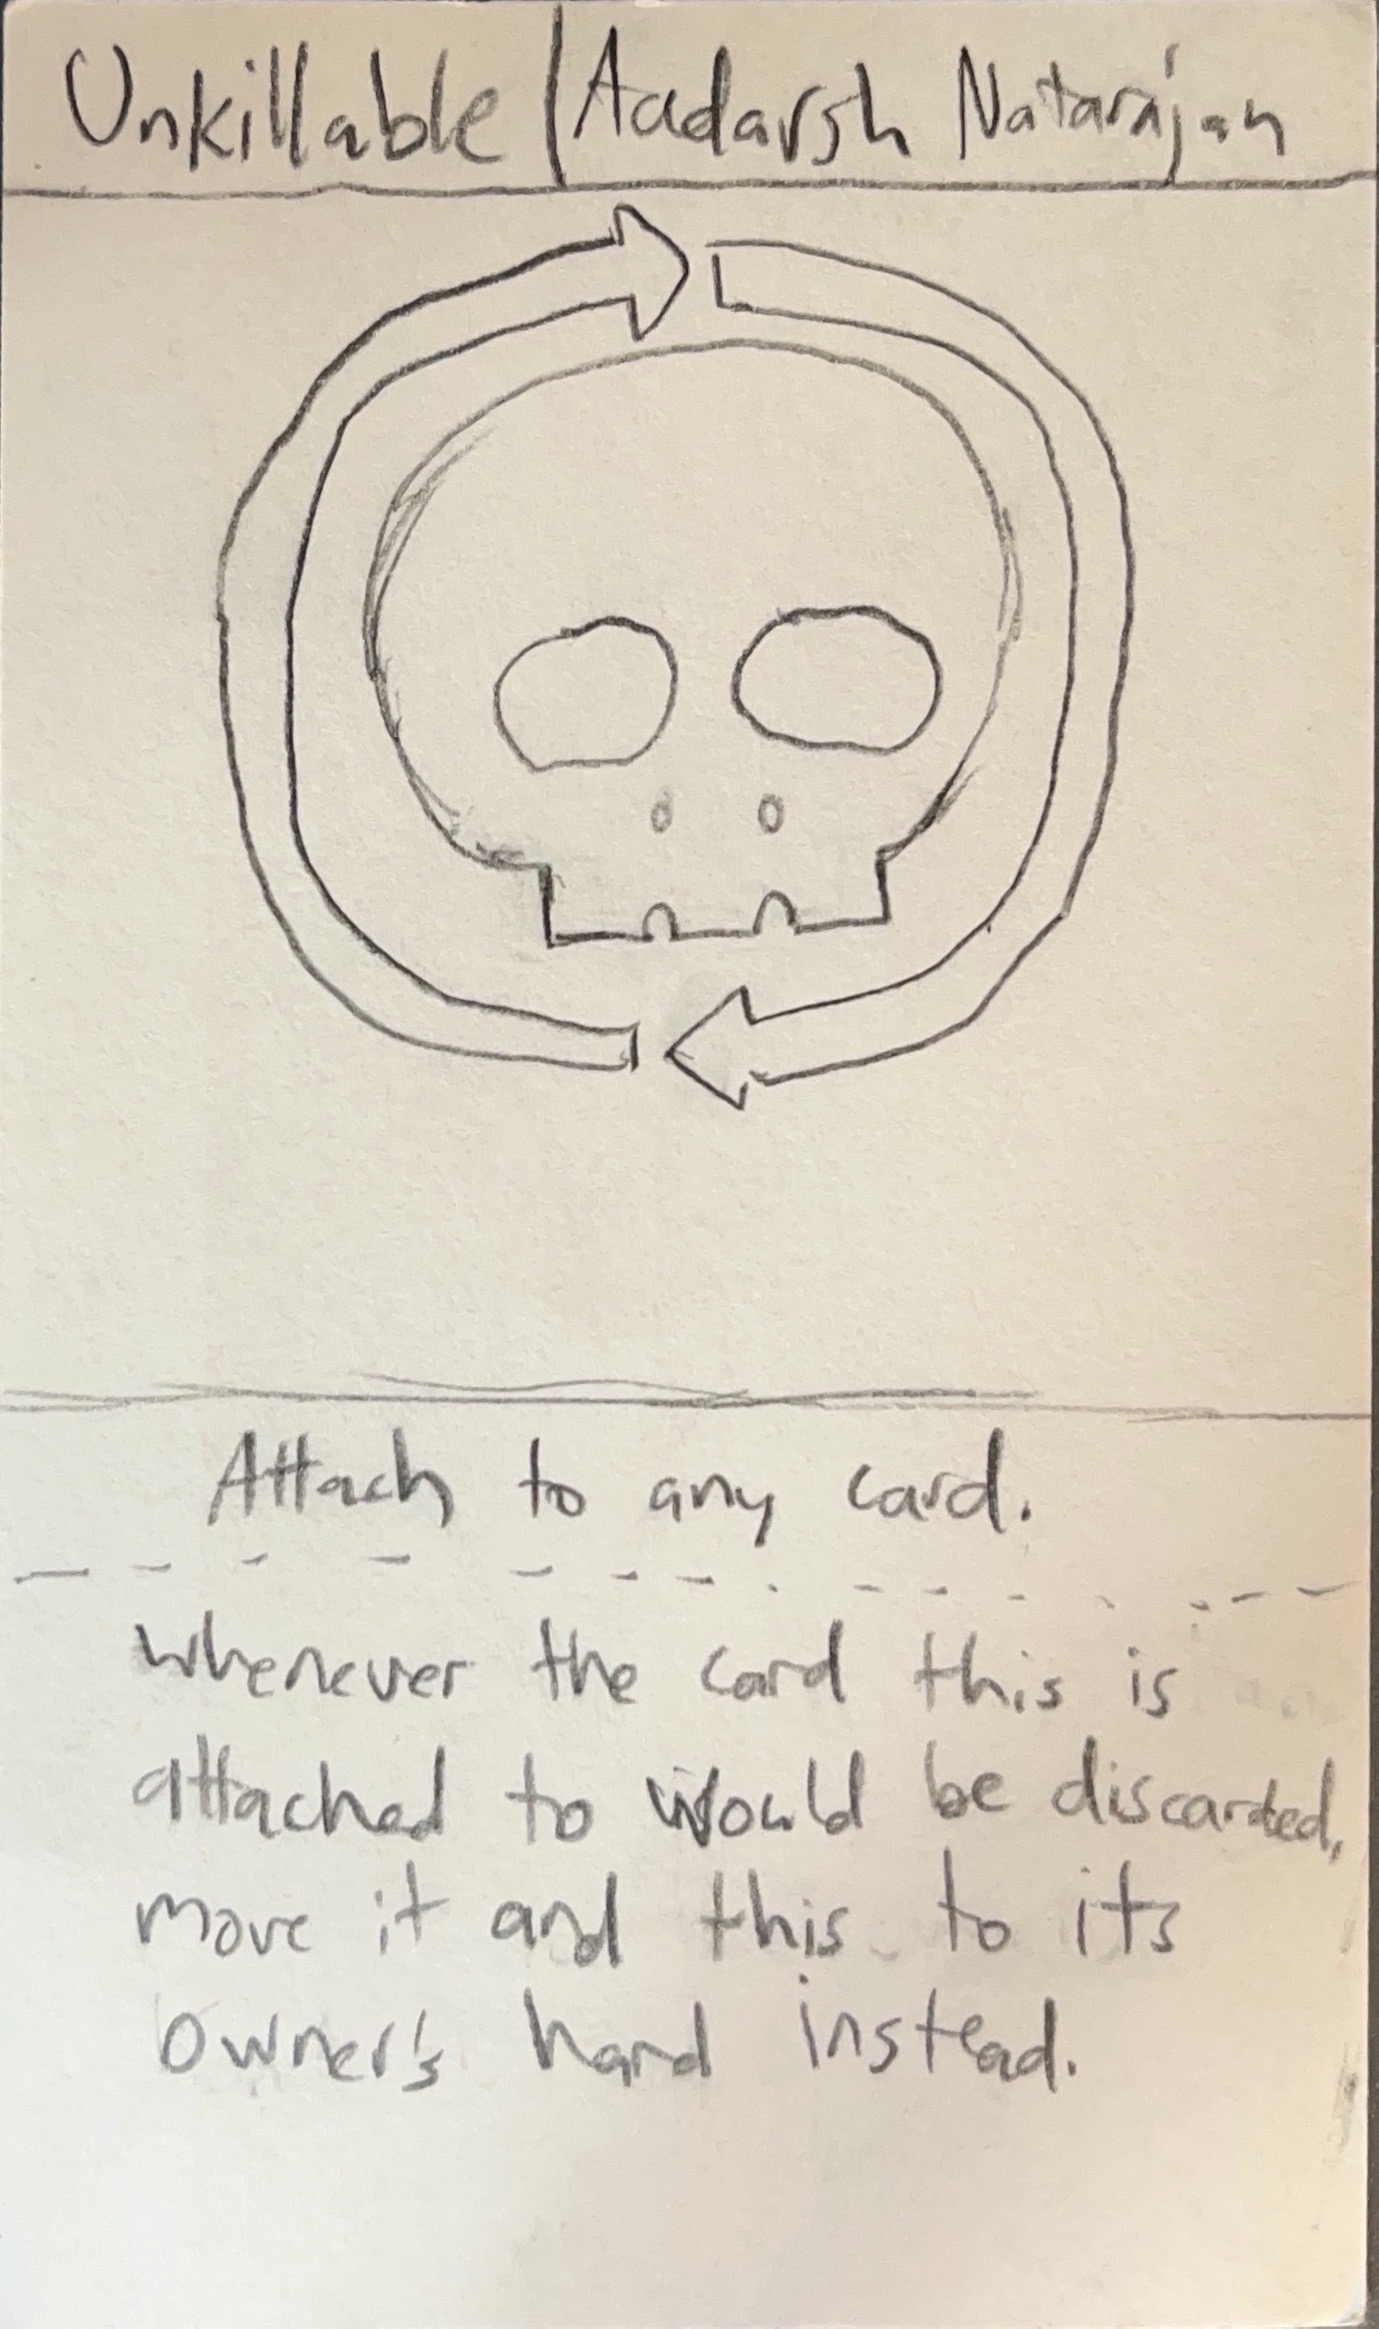 Unkillable | Aadarsh Natarajan
Attach to any card.
whenever the card this is
attached to would be discarded,
move it and this to its
owner's hand instead.